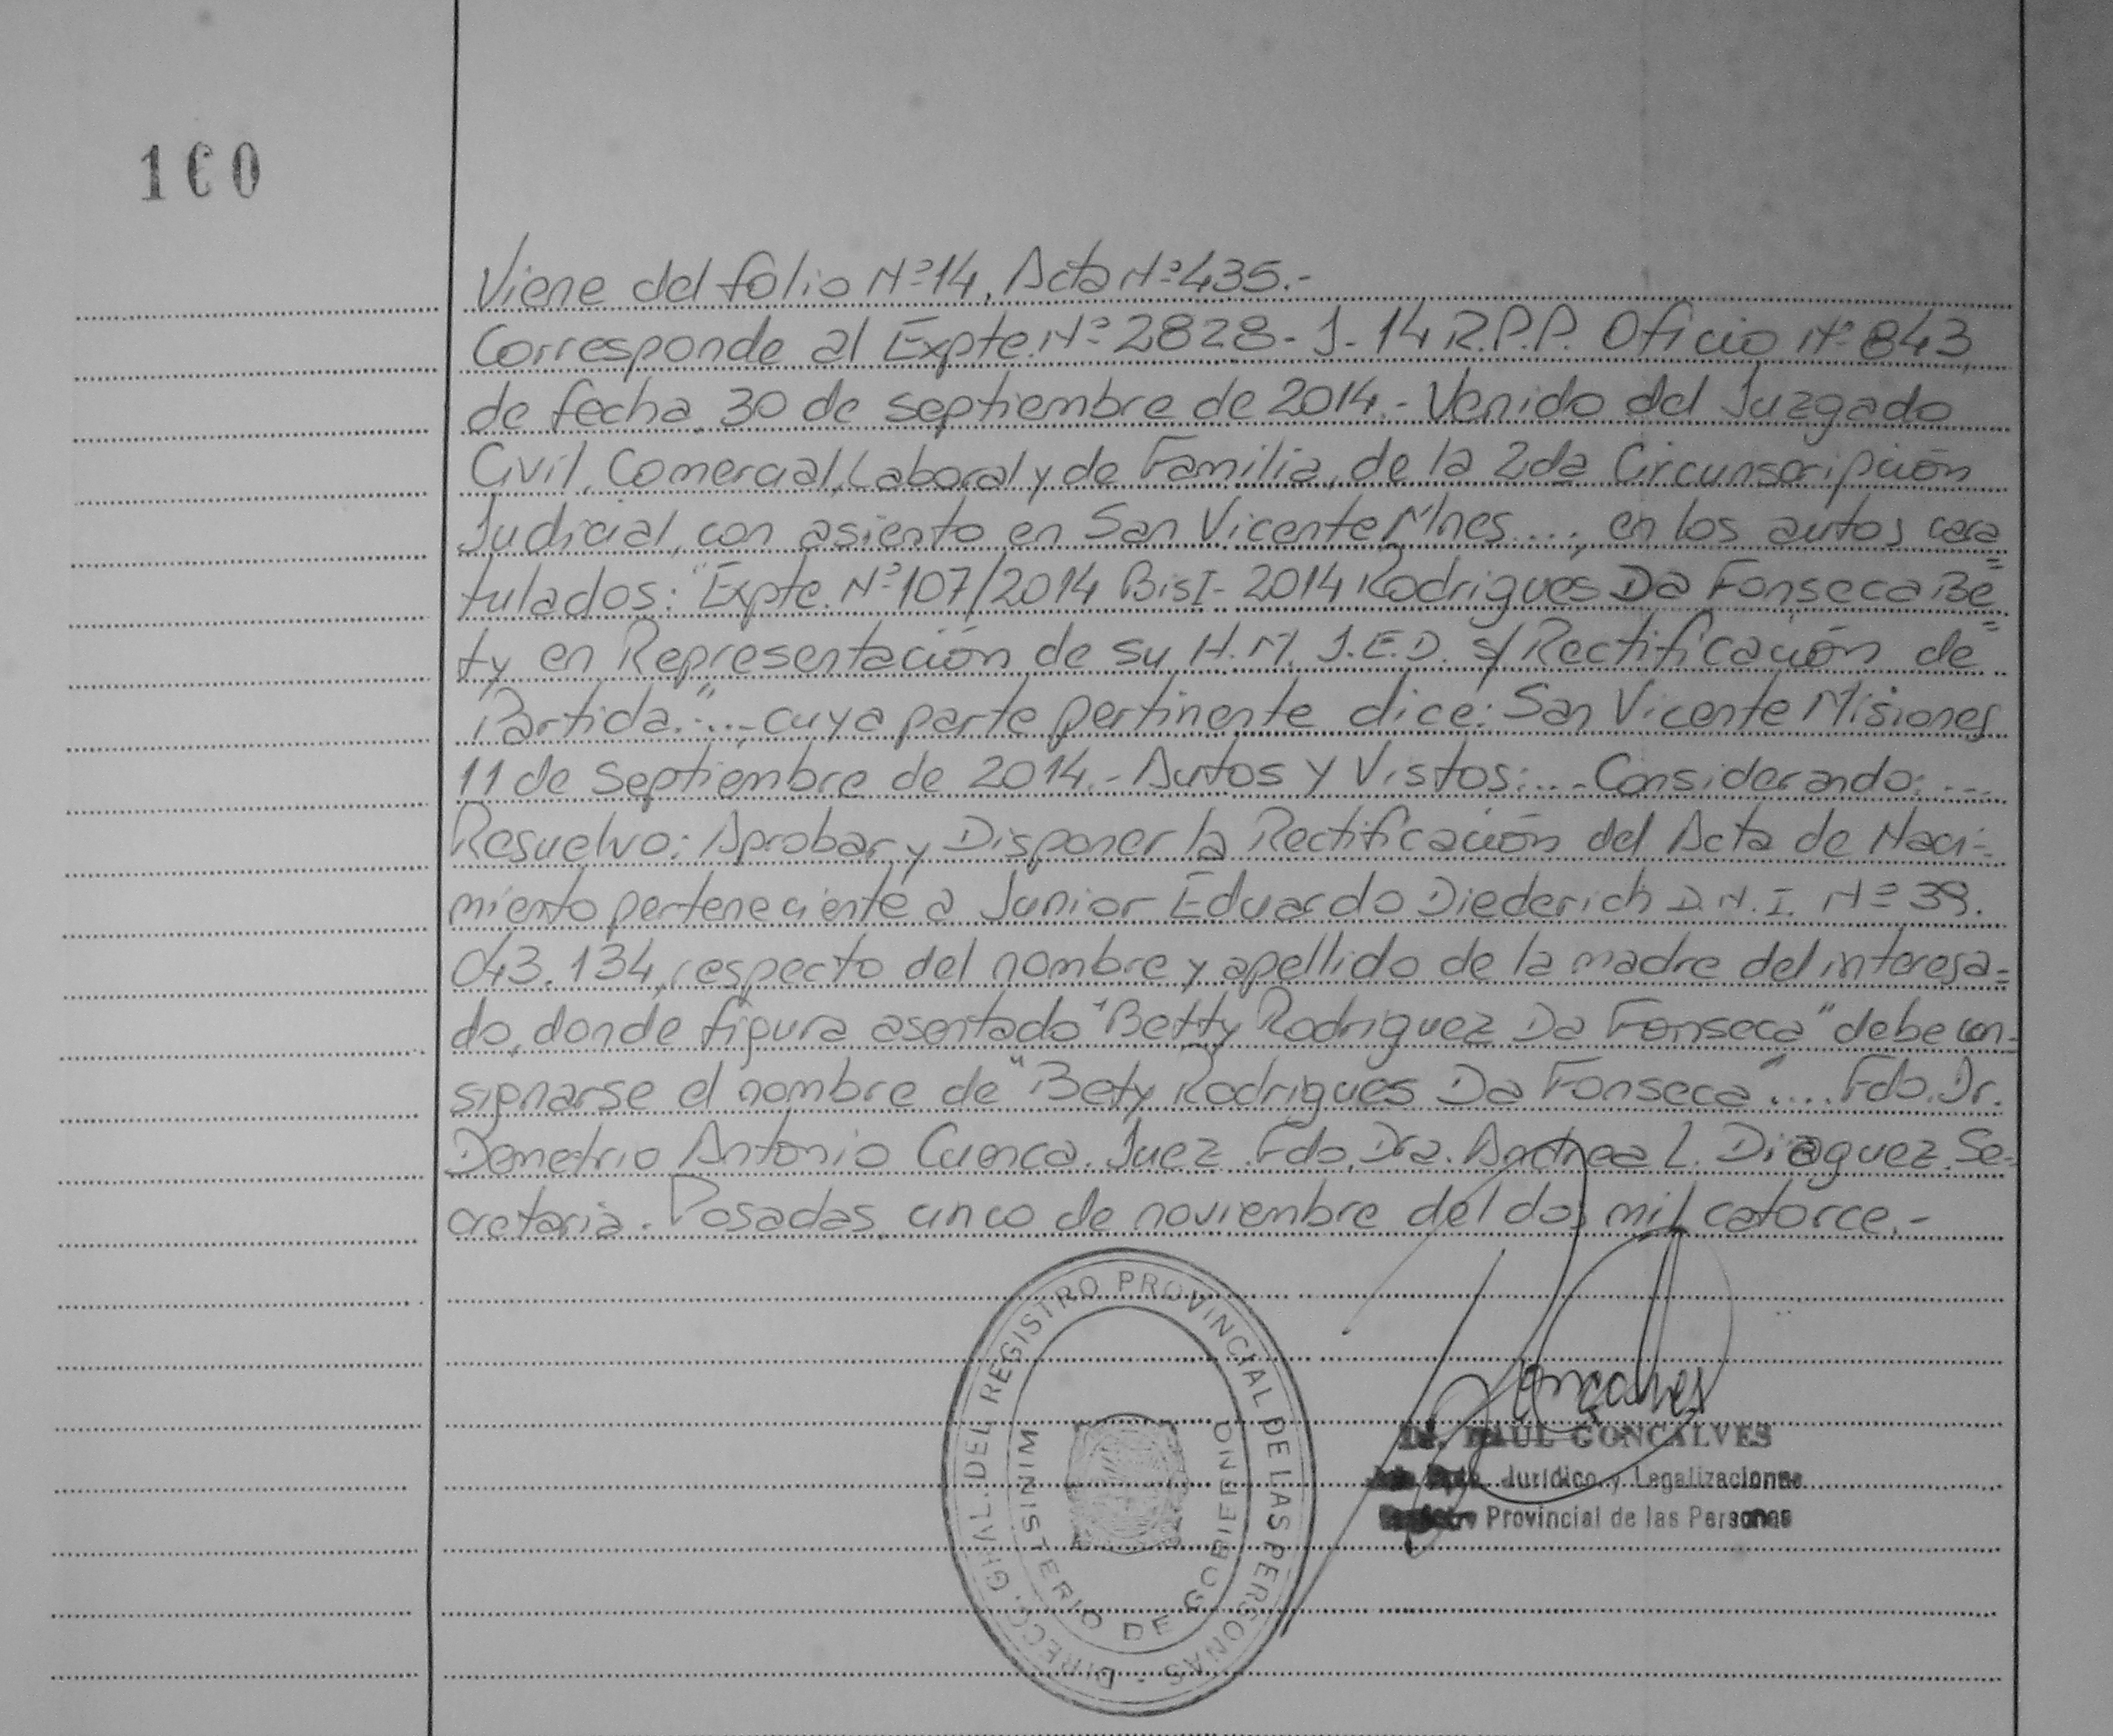 160
Viene del folio Nº14, Acta Nº435.-
Corresponde al Expte. Nº 2828- J- 14 R.P.P. Oficio Nº 843
de fecha 30 de septiembre de 2014.- Venido del Juzgado
Civil, Comercial, Laboral y de Familia, de la 2da Circunscripición
Judicial, con asiento en San Vicente Mnes...., en los autos cara=
tulados: "Expte. Nº107/2014 BisI- 2014 Rodrigues Da Fonseca Be=
ty en Representación de su H.M. J.E.D. s/ Rectificación de
Partida."...- cuya parte pertinente dice: San Vicente Misiones
11 de septiembre de 2014.- Autos y Vistos:... Considerando:...
Resuelvo: Aprobar y Disponer la Rectificación del Acta de Naci-
miento perteneciente a Junior Eduardo Diederich D.N.I. Nº 39.
043.134, respecto del nombre y apellido de la madre del interesa=
do, donde figura asentado "Betty Rodriguez Da Fonseca" debe con-
signarse el nombre de "Bety Rodrigues Da Fonseca".... Fdo. Dr.
Demetrio Antonio Cuenca. Juez. Fdo. Dra. Andrea L. Diaguez. Se-
cretaria. Posadas, cinco de noviembre del dos mil catorce.-
DIRECC. GRAL. DEL REGISTRO PROVINCIAL DE LAS PERSONAS
MINISTERIO DE GOBIERNO
Goncalves
Dr. RAUL GONCALVES
Jurídico y Legalizaciones
Registro Provincial de las Personas